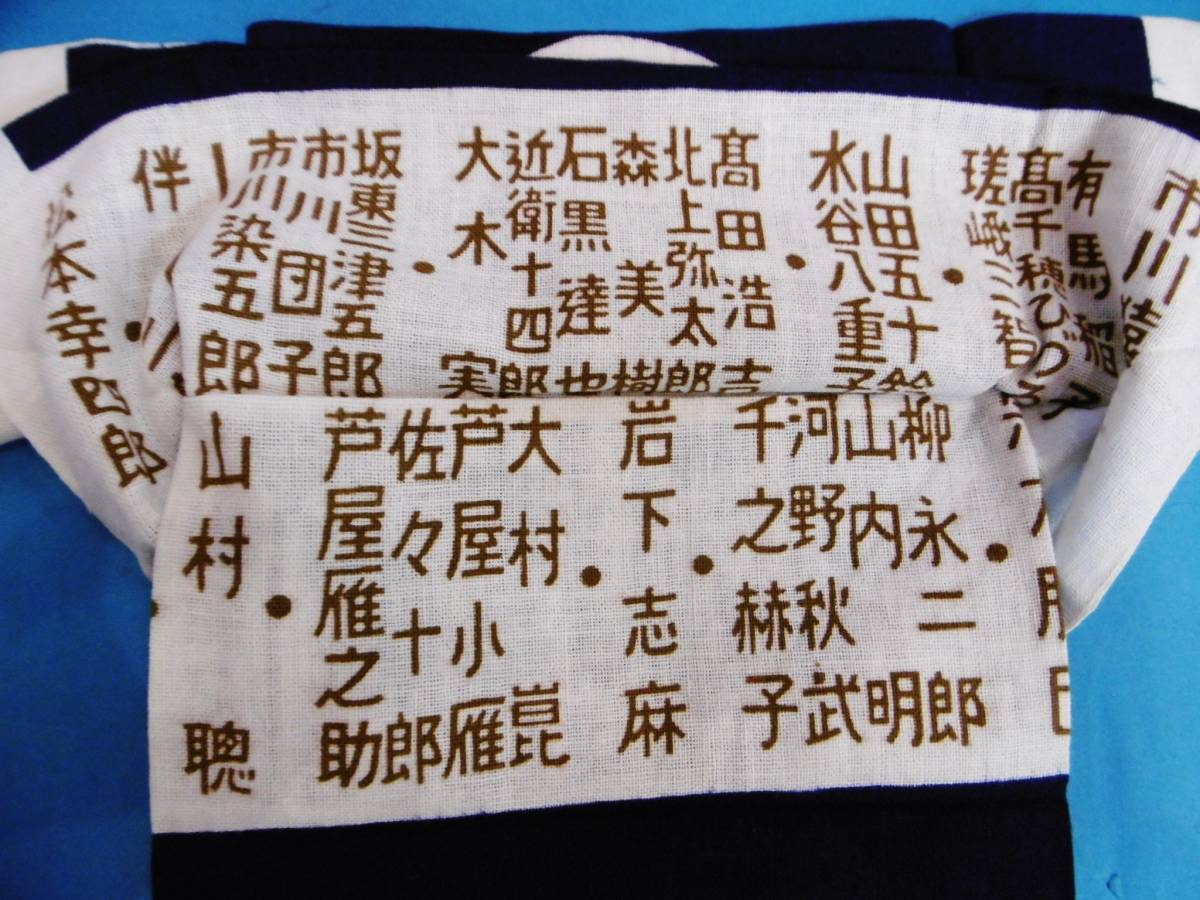 市川
有馬稲子
髙千穂ひづ
瑳峨三智
山田五十鈴
水谷八重子
髙田浩吉
北上弥太郎
森美樹
石黒達也
近衛十四郎
大木実
坂東三津五郎
市川団子
市川染五郎
伴
松本幸四郎
柳永二郎
山内明
河野秋武
千之赫子
岩下志麻
大村崑
芦屋小雁
佐々十郎
芦屋雁之助
山村聰